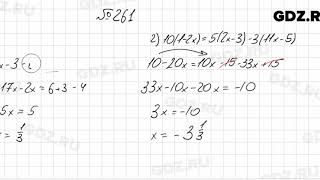 GDZ.RU
№261
x-3-4
17x-2x=6+3-4
5x=5
x=1/3
2) 10(1-2x)=5(2x-3)-3(11x-5)
10-20x=10x-15-33x+15
33x-10x-20x=-10
3x=-10
x=-3 1/3